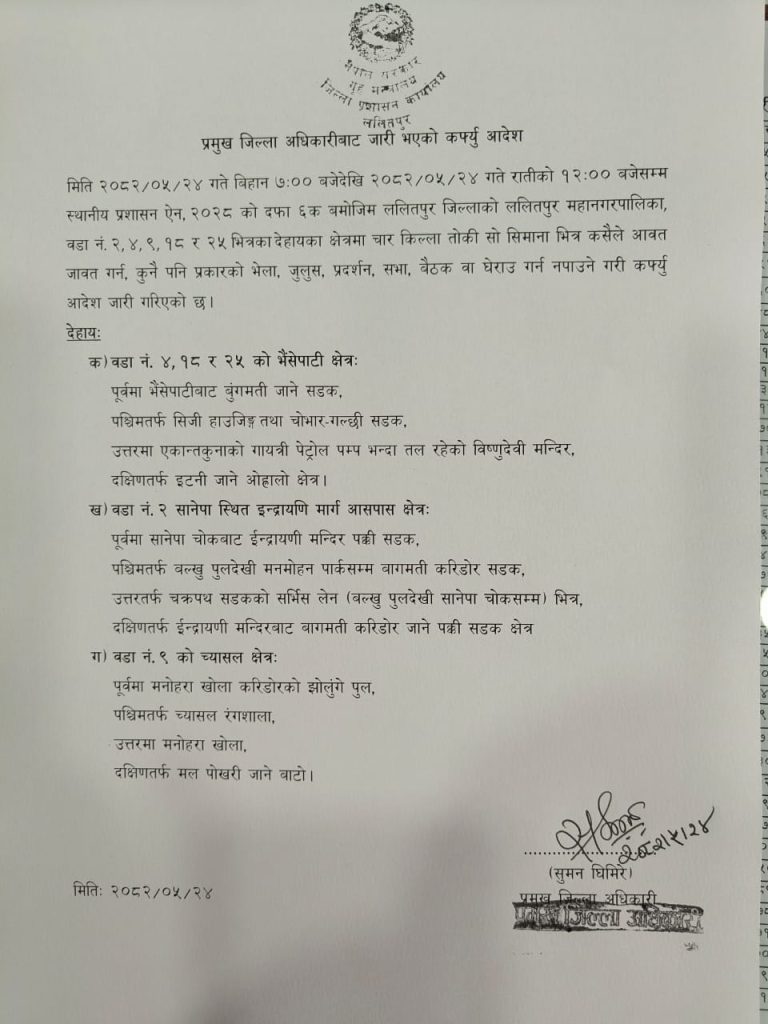 नेपाल सरकार
गृह मन्त्रालय
जिल्ला प्रशासन कार्यालय
ललितपुर
प्रमुख जिल्ला अधिकारीबाट जारी भएको कर्फ्यु आदेश
मिति २०८२/०५/२४ गते बिहान ७:०० बजेदेखि २०८२/०५/२४ गते रातीको १२:०० बजेसम्म
स्थानीय प्रशासन ऐन, २०२८ को दफा ६क बमोजिम ललितपुर जिल्लाको ललितपुर महानगरपालिका,
वडा नं. २, ४, ९, १८ र २५ भित्रका देहायका क्षेत्रमा चार किल्ला तोकी सो सिमाना भित्र कसैले आवत
जावत गर्न, कुनै पनि प्रकारको भेला, जुलुस, प्रदर्शन, सभा, बैठक वा घेराउ गर्न नपाउने गरी कर्फ्यु
आदेश जारी गरिएको छ।
देहायः
क) वडा नं. ४, १८ र २५ को भैंसेपाटी क्षेत्रः
पूर्वमा भैंसेपाटीबाट बुंगमती जाने सडक,
पश्चिमतर्फ सिजी हाउजिङ्ग तथा चोभार-गल्छी सडक,
उत्तरमा एकान्तकुनाको गायत्री पेट्रोल पम्प भन्दा तल रहेको विष्णुदेवी मन्दिर,
दक्षिणतर्फ इटनी जाने ओह्रालो क्षेत्र।
ख) वडा नं. २ सानेपा स्थित इन्द्रायणि मार्ग आसपास क्षेत्रः
पूर्वमा सानेपा चोकबाट ईन्द्रायणी मन्दिर पक्की सडक,
पश्चिमतर्फ वल्खु पुलदेखी मनमोहन पार्कसम्म वागमती करिडोर सडक,
उत्तरतर्फ चक्रपथ सडकको सर्भिस लेन (वल्खु पुलदेखी सानेपा चोकसम्म) भित्र,
दक्षिणतर्फ ईन्द्रायणी मन्दिरबाट वागमती करिडोर जाने पक्की सडक क्षेत्र
ग) वडा नं. ९ को च्यासल क्षेत्रः
पूर्वमा मनोहरा खोला करिडोरको झोलुंगे पुल,
पश्चिमतर्फ च्यासल रंगशाला,
उत्तरमा मनोहरा खोला,
दक्षिणतर्फ मल पोखरी जाने वाटो।
२०८२।५।२४
(सुमन घिमिरे)
मितिः २०८२/०५/२४
प्रमुख जिल्ला अधिकारी
प्रमुख जिल्ला अधिकारी